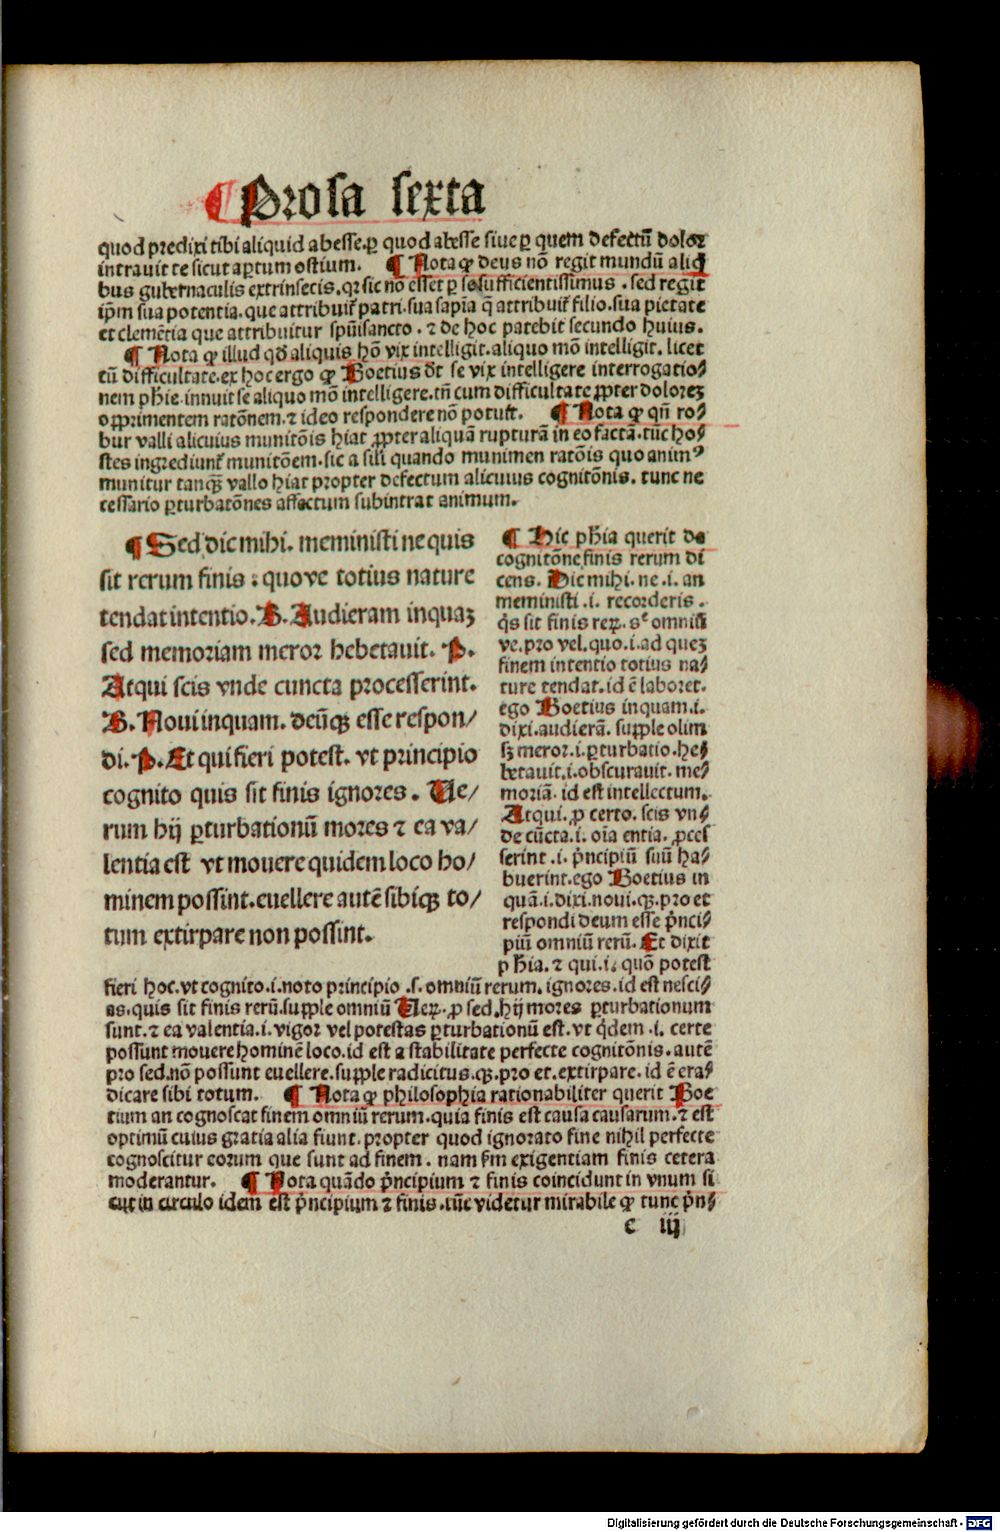 ¶ Prosa sexta
quod predixi tibi aliquid abesse.ꝑ quod abesse siue ꝑ quem defectū dolor
intrauit te sicut aꝑtum ostium. ¶ Nota ꝙ deus nō regit mundū aliq̇
bus gubernaculis extrinsecis.qꝛ sic nō esset ꝑ se sufficientissimus . sed regit
ip̄m sua potentia.que attribuit᷑ patri.sua sapīa q̄ attribuit᷑ filio.sua pietate
et clemētia que attribuitur spūisancto . ⁊ de hoc patebit secundo huius.
¶ Nota ꝙ illud qd̄ aliquis hō vix intelligit.aliquo mō intelligit. licet
cū difficultate.ex hoc ergo ꝙ Boetius dt̄ se vix intelligere interrogatio⸗
nem phie.innuit se aliquo mō intelligere.tn̄ cum difficultate ꝓpter dolorez
opprimentem ratōnem.⁊ ideo respondere nō potuit. ¶ Nota ꝙ qn̄ ro⸗
bur valli alicuius munitōis hiat ꝓpter aliquā rupturā in eo factā.tūc ho⸗
stes ingrediunt᷑ munitōem.sic a sili quando munimen ratōis quo animꝰ
munitur tanqꝫ vallo hiat propter defectum alicuius cognitōnis. tunc ne
cessario ꝑturbatōnes affectum subintrat animum.
¶ Sed dic mihi. meministi ne quis
sit rerum finis : quo ve totius nature
tendat intentio.B. Audieram inquaz
sed memoriam meror hebetauit. P.
Atqui scis vnde cuncta processerint.
B. Noui inquam. deūqꝫ esse respon/
di.P. Et qui fieri potest. vt principio
cognito quis sit finis ignores. Ve/
rum hij ꝑturbationū mores ⁊ ea va/
lentia est vt mouere quidem loco ho/
minem possint.euellere autē sibiqꝫ to/
tum extirpare non possint.
¶ Hic phīa querit de
cognitōne finis rerum di
cens. Dic mihi. ne .i. an
meministi .i. recorderis .
q̇s sit finis reꝝ. s᷑ omniū
ve. pro vel. quo.i.ad quez
finem intentio totius na⸗
ture tendat.id ē laboret.
ego Boetius inquam.i.
dixi.audierā. supple olim
sꝫ meror.i.ꝑturbatio.he⸗
betauit.i.obscurauit. me⸗
moriā. id est intellectum.
Atqui. ꝓ certo. scis vn⸗
de cūcta.i. oīa entia. ꝓces
serint .i. pṅcipiū suū ha⸗
buerint.ego Boetius in
quā.i.dixi.noui.qꝫ.pro et
respondi deum esse pṅci⸗
piū omniū rerū. Et dixit
phīa. ⁊ qui.i. quō potest
fieri hoc.vt cognito.i.noto principio .s. omniū rerum. ignores.id est nesci⸗
as.quis sit finis rerū.supple omniū Veꝝ. ꝓ sed.hij mores ꝑturbationum
sunt.⁊ ea valentia.i.vigor vel potestas ꝑturbationū est.vt q̇dem .i. certe
possunt mouere hominē loco.id est a stabilitate perfecte cognitōnis.autē
pro sed.nō possunt euellere.supple radicitus.qꝫ.pro et.extirpare.id ē era⸗
dicare sibi totum. ¶ Nota ꝙ philosophia rationabiliter querit Boe
tium an cognoscat finem omniū rerum.quia finis est causa causarum.⁊ est
optimū cuius gratia alia fiunt.propter quod ignorato fine nihil perfecte
cognoscitur eorum que sunt ad finem . nam ẜm exigentiam finis cetera
moderantur. ¶ Nota quādo pṅcipium ⁊ finis coincidunt in vnum si
cut in circulo idem est pṅcipium ⁊ finis.tūc videtur mirabile ꝙ tunc pṅ⸗
c iij
Digitalisierung gefördert durch die Deutsche Forschungsgemeinschaft - DFG